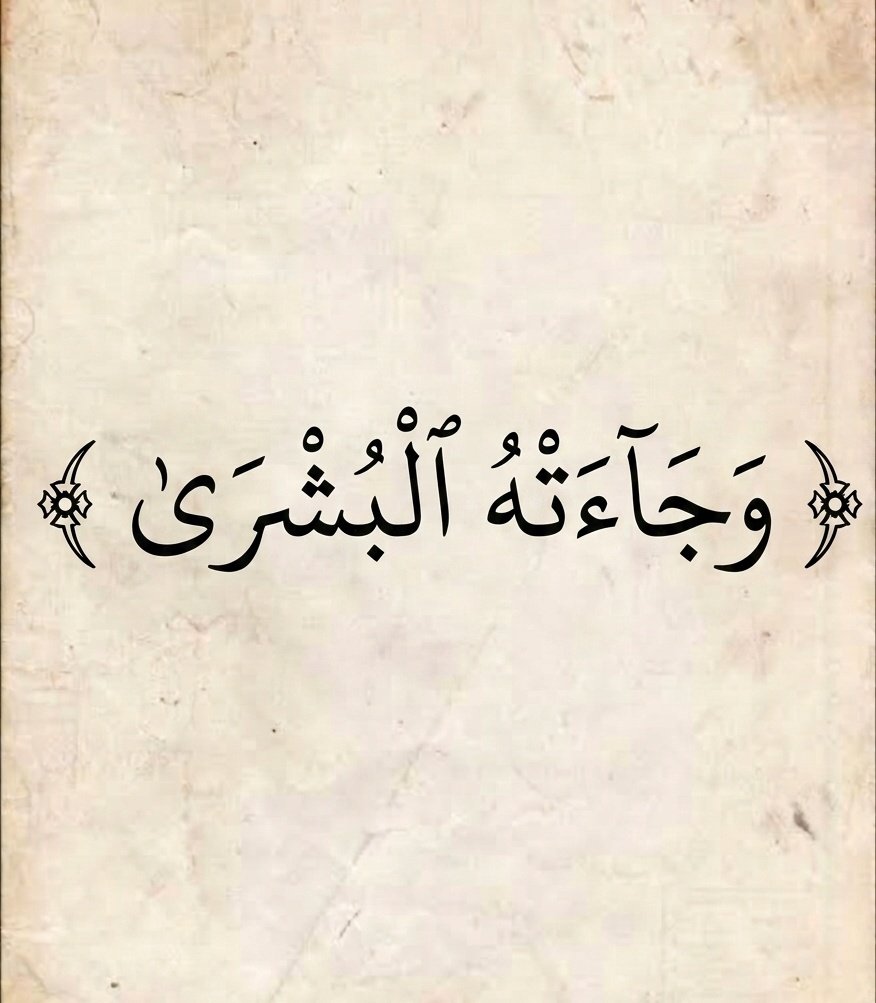 ﴿وَجَآءَتْهُ ٱلْبُشْرَىٰ﴾